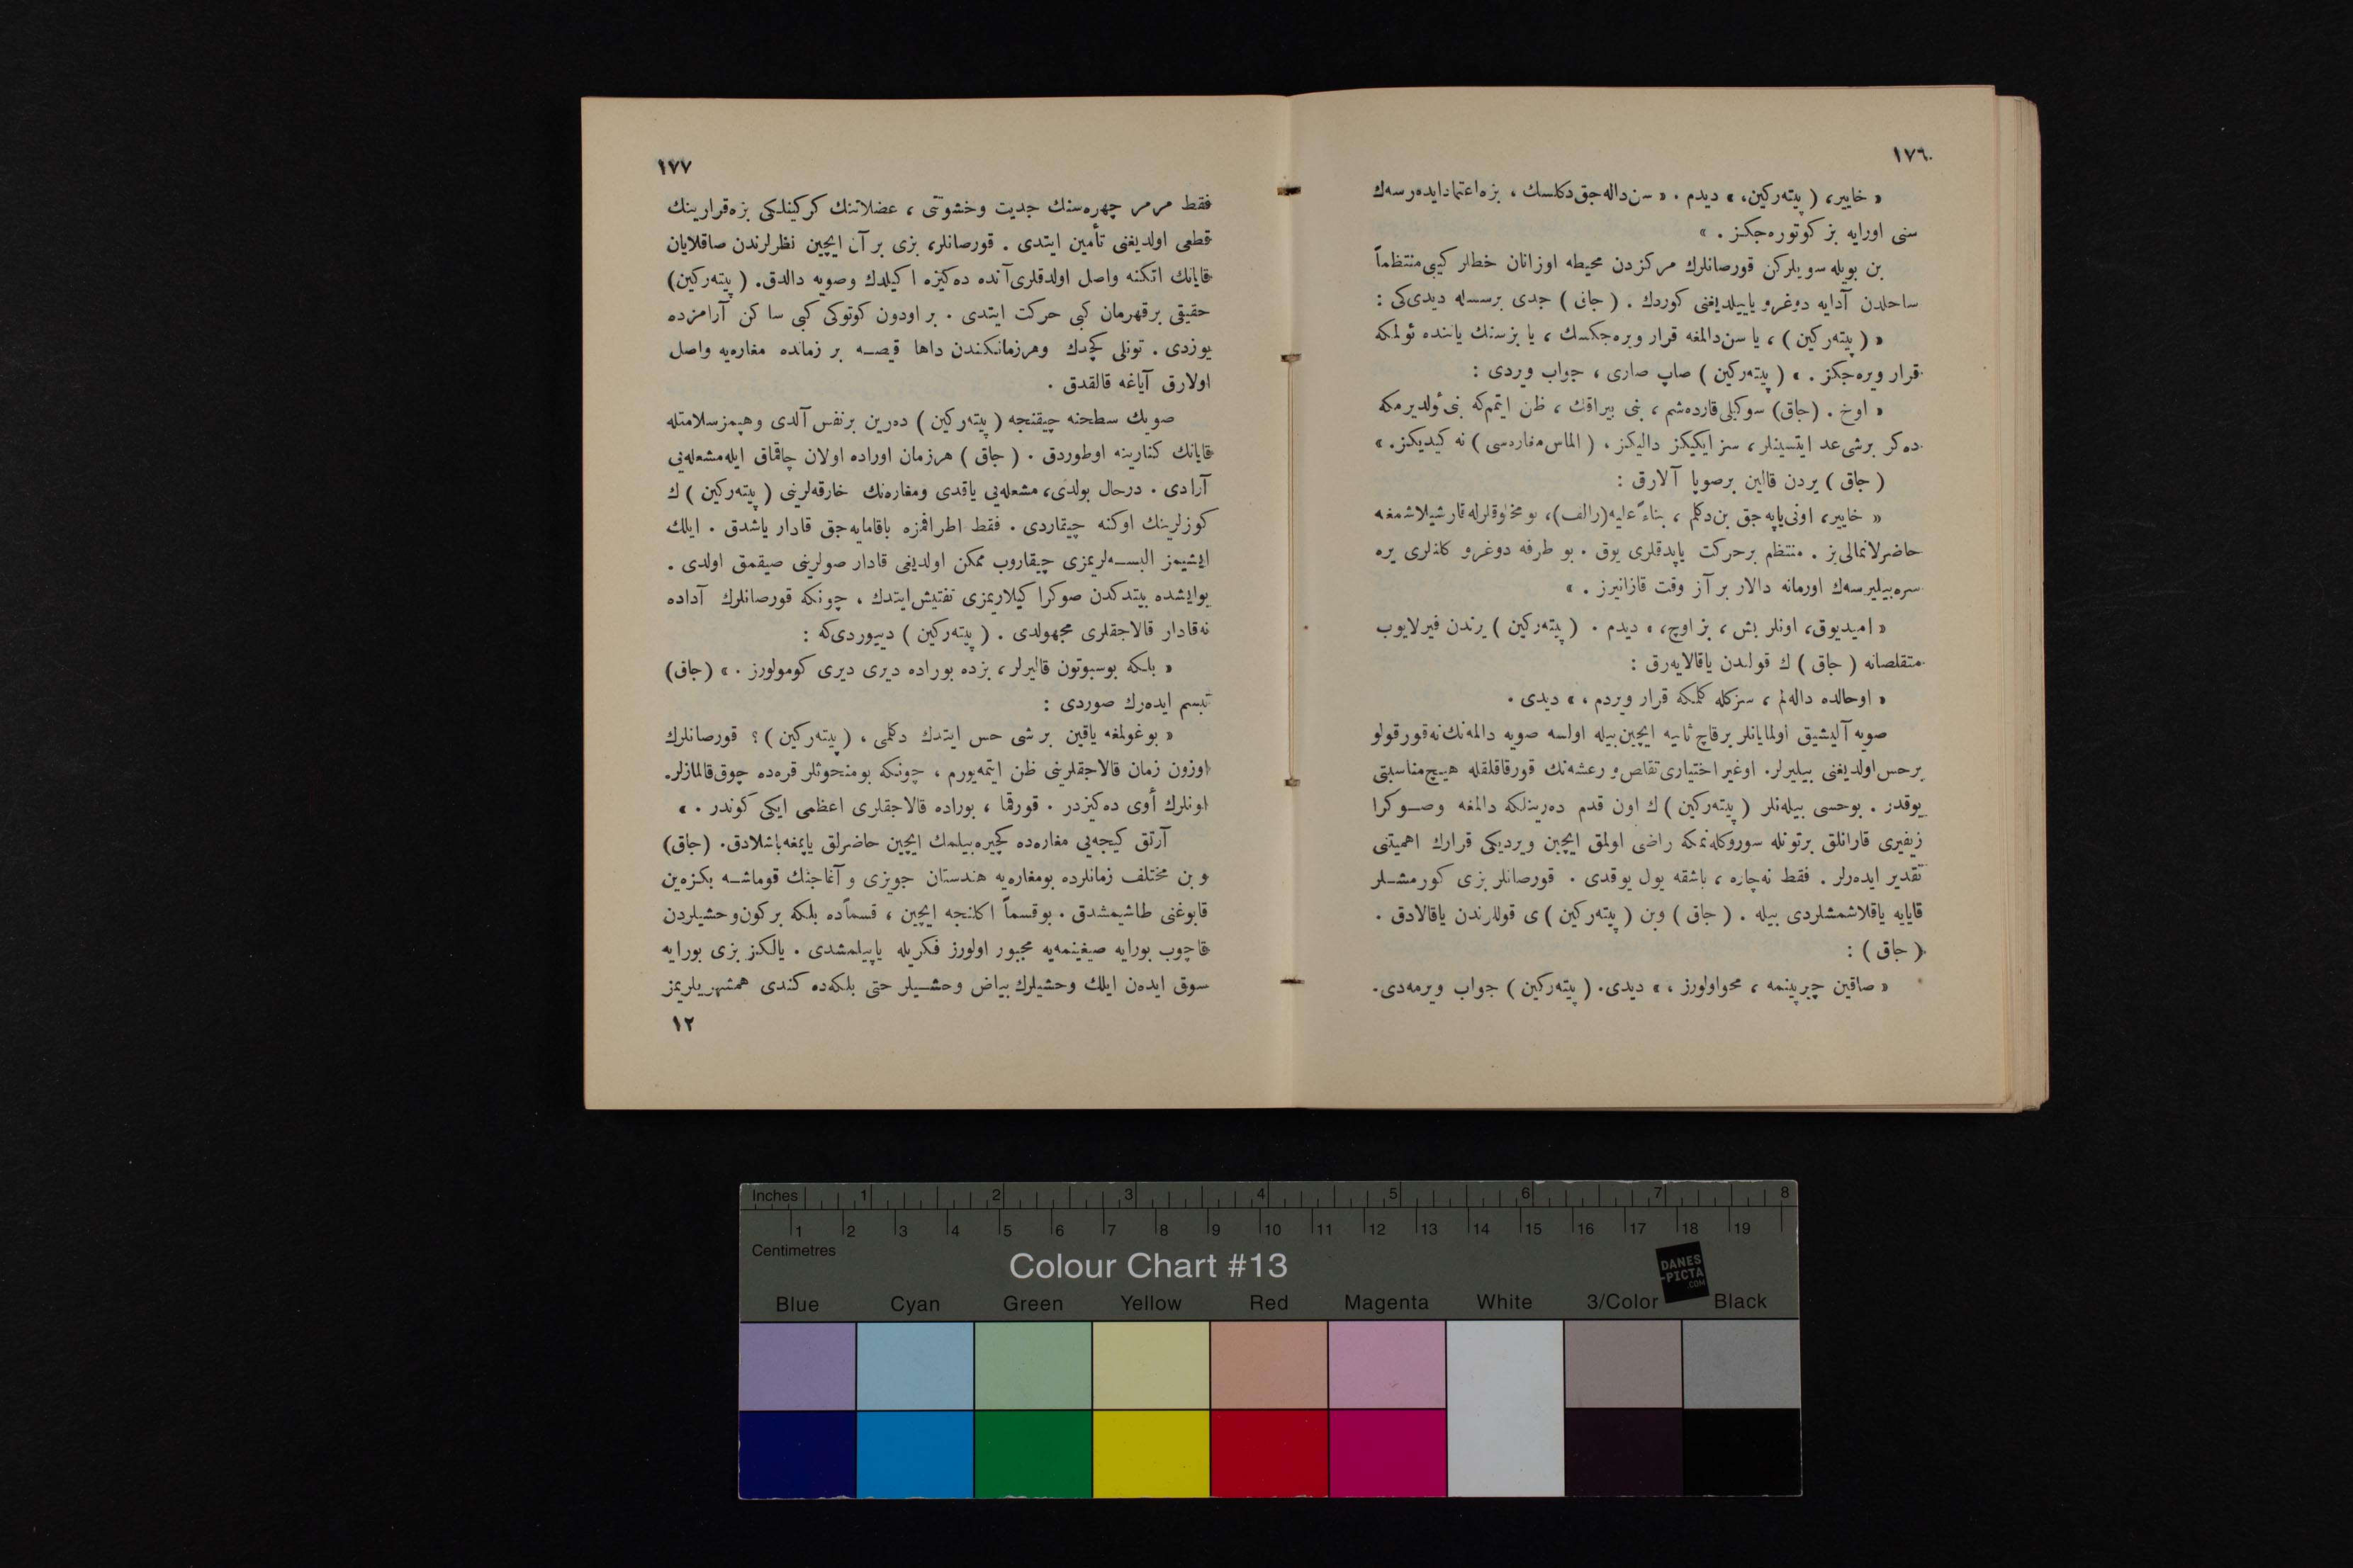 ١٧٦
« خاییر، (پیته‌ركین، » دیدم . « سن داله‌جق دكلسك ، بزه اعتماد ایده‌رسه‌ك
سنی اورایه بز كوتوره‌جكز . »
بن بویله سویلركن قورصانلرك مركزدن محیطه اوزانان خطلر كیبی منتظماً
ساحلدن آدایه دوغرو یاییلدیغنی كوردك . ( جانی ) جدی برسسله دیدی‌كی :
« ( پیته‌ركین ) ، یا سن دالمغه قرار ویره‌جكسك ، یا بز سنك یاننده ئولمكه
قرار ویره‌جكز . » ( پیته‌ركین ) صاپ صاری ، جواب وردی :
« اوخ . (جاق) سوكیلی قارده‌شم ، بنی بیراقك ، ظن ایتمم‌كه بنی ئولدیرمكه
ده‌كر برشی عد ایتسینلر ، سز ایكیكز دالیكز ، ( الماس مغاره‌سی ) نه كیدیكز. »
( جاق ) یردن قالین برصوپا آلارق :
« خاییر، اونی یاپه‌جق بن دكلم ، بناءً علیه (رالف)، بو مخلوقلرله قارشیلاشمغه
حاضرلانمالی‌یز . منتظم برحركت یاپدقلری یوق . بو طرفه دوغرو كلنلری یره
سره‌بیلیرسه‌ك اورمانه دالار بر آز وقت قازانیرز . »
« امیدیوق، اونلر بش ، بز اوچ، » دیدم . ( پیته‌ركین ) یرندن فیرلایوب
متقلصانه ( جاق ) ك قولندن یاقالایه‌رق :
« اوحالده داله‌لم ، سزكله كلمكه قرار ویردم ، » دیدی .
صویه آلیشیق اولمایانلر برقاچ ثانیه ایچین بیله اولسه صویه دالمه‌نك نه قورقولو
برحس اولدیغنی بیلیرلر. اوغیر اختیاری تقلص و رعشه‌نك قورقاقلقله هیچ مناسبتی
یوقدر . بوحسی بیله‌نلر ( پیته‌ركین ) ك اون قدم ده‌رینلكه دالمغه وصوكرا
زیفیری قارانلق برتونله سوروكله‌نمكه راضی اولمق ایچین ویردیكی قرارك اهمیتنی
تقدیر ایده‌رلر . فقط نه‌چاره ، باشقه یول یوقدی . قورصانلر بزی كورمشلر
قایایه یاقلاشمشلردی بیله . ( جاق ) وبن ( پیته‌ركین ) ی قوللرندن یاقالادق .
( جاق ) :
« صاقین چیرپینمه ، محواولورز ، » دیدی. ( پیته‌ركین ) جواب ویرمه‌دی.
١٧٧
فقط مرمر چهره‌سنك جدیت وخشونتی ، عضلاتنك كركینلكی بزه قرارینك
قطعی اولدیغنی تأمین ایتدی . قورصانلر، بزی بر آن ایچین نظرلرندن صاقلایان
قایانك اتكنه واصل اولدقلری آنده ده‌كیزه اكیلدك وصویه دالدق. ( پیته‌ركین)
حقیقی برقهرمان كبی حركت ایتدی . بر اودون كوتوكی كبی ساكن آرامزده
یوزدی . تونلی كچدك وهرزمانكندن داها قیصه بر زمانده مغاره‌یه واصل
اولارق آیاغه قالقدق .
صویك سطحنه چیقنجه ( پیته‌ركین ) ده‌رین برنفس آلدی وهپمز سلامتله
قایانك كنارینه اوطوردق . ( جاق ) هرزمان اوراده اولان چاقماق ایله مشعله‌یی
آرادی . درحال بولدی، مشعله‌یی یاقدی ومغاره‌نك خارقه‌لرینی ( پیته‌ركین ) ك
كوزلرینك اوكنه چیقاردی . فقط اطرافمزه باقامایه‌جق قادار یاشدق . ایلك
ایشیمز البسه‌لریمزی چیقاروب ممكن اولدیغی قادار صولرینی صیقمق اولدی .
بوایشده بیتدكدن صوكرا كیلاریمزی تفتیش ایتدك ، چونكه قورصانلرك آداده
نه‌قادار قالاجقلری مجهولدی . ( پیته‌ركین ) دییوردی‌كه :
« بلكه بوسبوتون قالیرلر ، بزده بوراده دیری دیری كومولورز . » (جاق)
تبسم ایده‌رك صوردی :
« بوغولمغه یاقین بر شی حس ایتدك دكلمی ، ( پیته‌ركین ) ؟ قورصانلرك
اوزون زمان قالاجقلرینی ظن ایتمه‌یورم ، چونكه بومنحوثلر قره‌ده چوق قالمازلر.
اونلرك أوی ده‌كیزدر . قورقما ، بوراده قالاجقلری اعظمی ایكی كوندر . »
آرتق كیجه‌یی مغاره‌ده كچیره‌بیلمك ایچین حاضرلق یاپمغه باشلادق. (جاق)
و بن مختلف زمانلرده بومغاره‌یه هندستان جویزی و آغاجنك قوماشه بكزه‌ین
قابوغنی طاشیمشدق . بوقسماً اكلنجه ایچین ، قسماًده بلكه بركون وحشیلردن
قاچوب بورایه صیغینمه‌یه مجبور اولورز فكریله یاپیلمشدی . یالكز بزی بورایه
سوق ایده‌ن ایلك وحشیلرك بیاض وحشیلر حتی بلكه‌ده كندی همشهریلریمز
١٢
Inches 1 2 3 4 5 6 7 8
1 2 3 4 5 6 7 8 9 10 11 12 13 14 15 16 17 18 19
Centimetres
Colour Chart #13
DANES
-PICTA
.COM
Blue Cyan Green Yellow Red Magenta White 3/Color Black